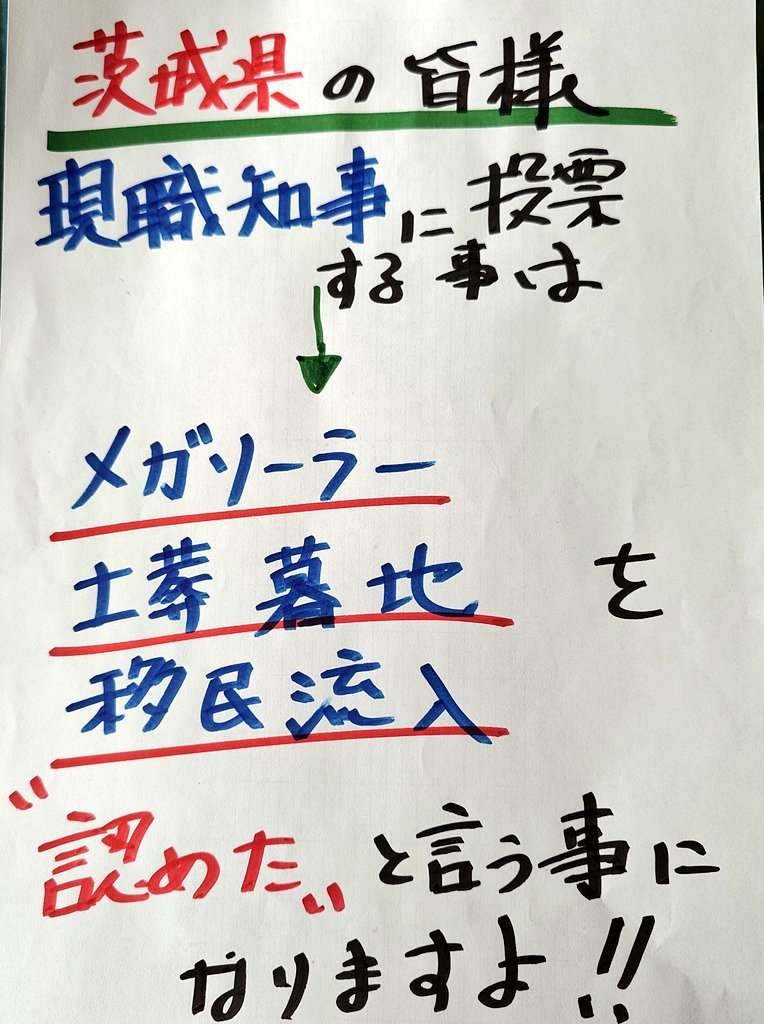 茨城県の皆様
現職知事に投票
する事は
メガソーラー
土葬墓地を
移民流入
"認めた"と言う事に
なりますよ!!